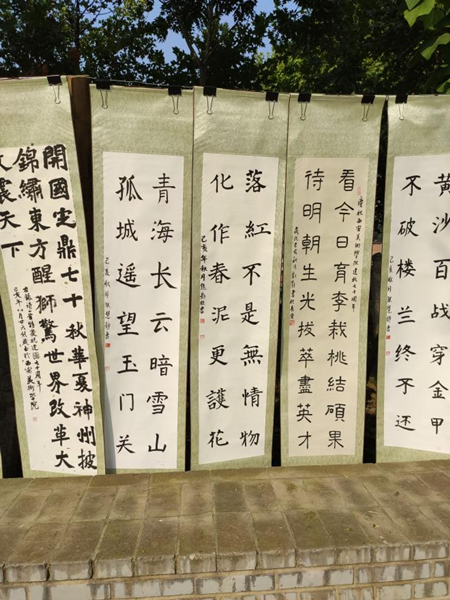 黄沙百战穿金甲
不破楼兰终不还
己亥秋月
慶祝西安美術學院建校七十周年
看今日育李栽桃結碩果
待明朝生光拔萃盡英才
落紅不是無情物
化作春泥更護花
己亥年秋月
青海长云暗雪山
孤城遥望玉门关
己亥秋月
開國定鼎七十秋華夏神州披
錦繡東方醒獅驚世界改革大
震天下